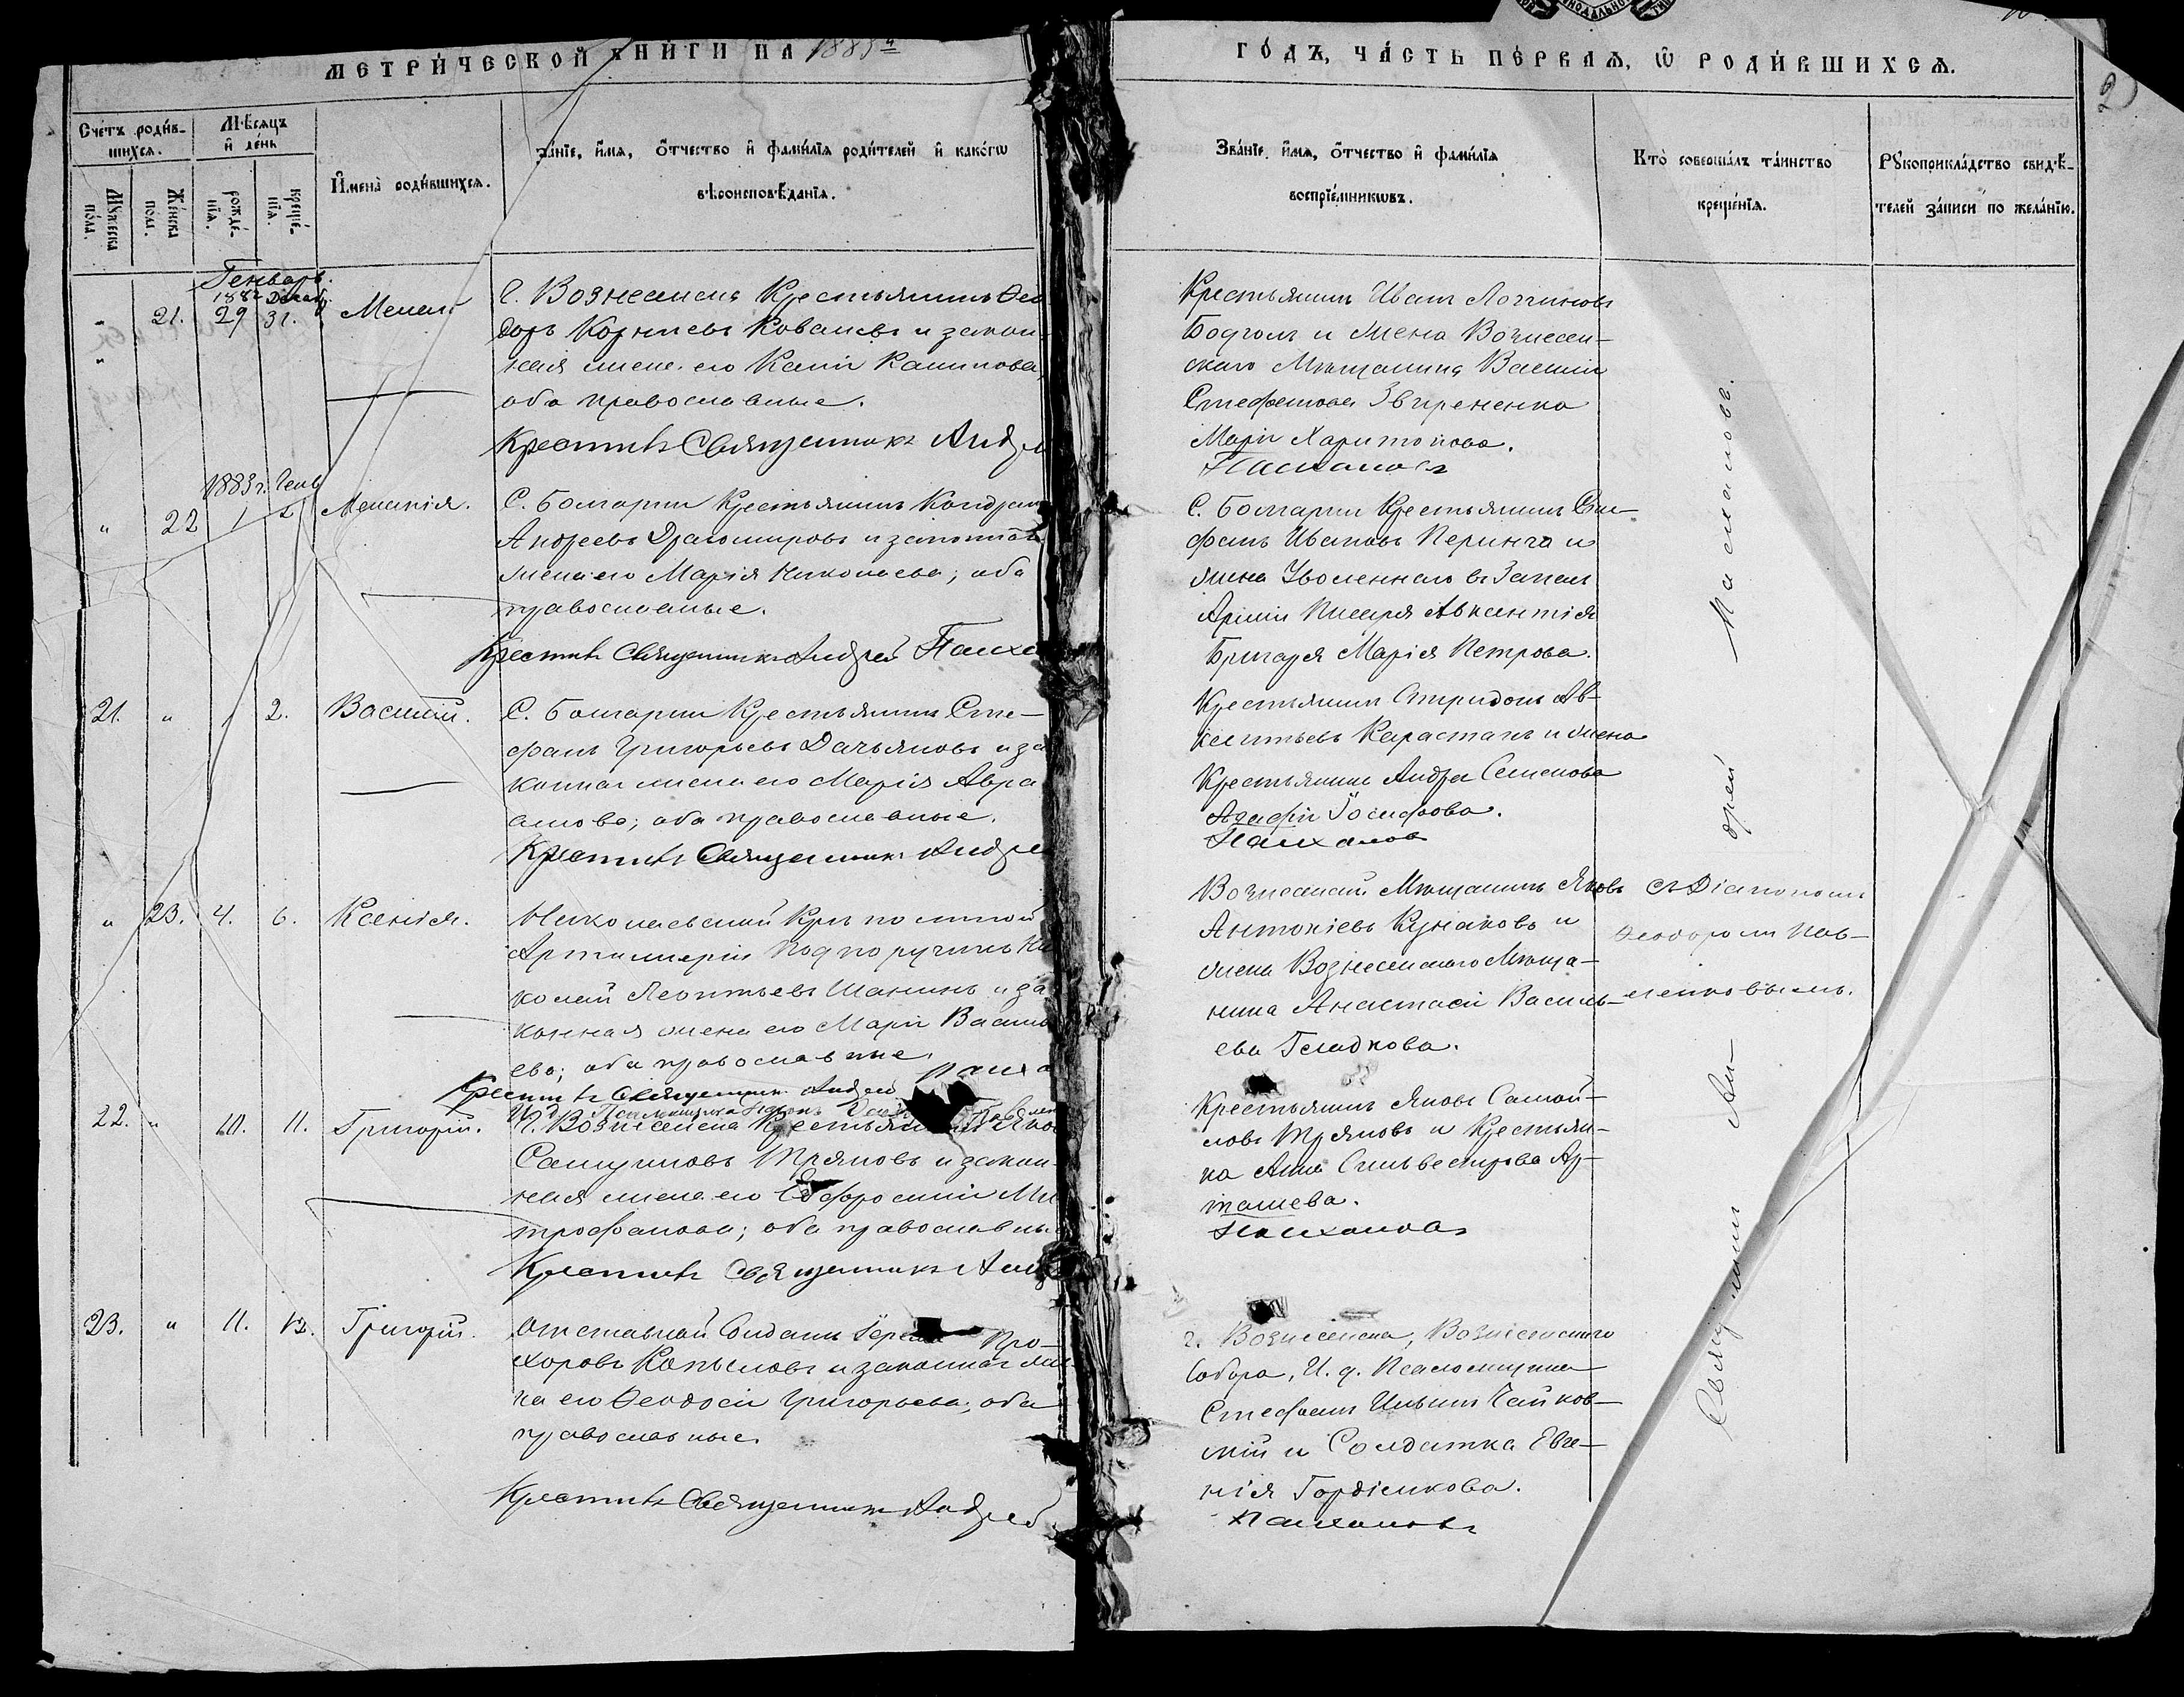 МЕТРИ́ЧЕСКОЙ КНИ́ГИ НА 1883й
ГО́ДЪ, ЧА́СТЬ ПЕ́РВАѦ, Ѡ҆ РОДИ́ВШИХСѦ.
2
Сче́тъ роди́в-
шихсѧ.
Мѣ́сѧцъ
и҆ де́нь
Му́жеска
по́ла.
Же́нска
по́ла.
рожде́-
нїѧ.
креще́-
нїѧ.
И҆мена̀ роди́вшихсѧ.
Зва́нїе, и҆́мѧ, ѻ҆́тчество и҆ фами́лїѧ роди́телей и҆ како́гѡ
вѣроисповѣ́данїѧ.
Зва́нїе, и҆́мѧ, ѻ҆́тчество и҆ фами́лїѧ
воспрїе́мникѡвъ.
Кто̀ соверша́лъ та́инство
креще́нїѧ.
Рꙋкоприкла́дство свидѣ́-
телей за́писи по жела́нїю.
Генварь.
1882 Декабр.
" 21. 29 31.
Г. Вознесенска Крестьянинъ Ѳео
доръ Корніевъ Ковалевъ и закон
ная жена его
оба православные.
Крестилъ Священникъ Андрей
Крестьянинъ Иванъ Логгиновъ
и жена Вознесен-
скаго Мѣщанина Василія
Стефанова Звирененко
Марія Харитонова.
Пасхаловъ
1883 г. Генв
" 22 1 2 Меланія.
С. Болгарки Крестьянинъ Кондратъ
Андреевъ Драгомировъ и законная
жена его Марія Николаева; оба
православные.
Крестилъ Священникъ Андрей Пасха
С. Болгарки Крестьянинъ Сте-
фанъ Ивановъ Перинга и
жена Уволеннаго въ Запасъ
Арміи Писаря Авксентія
Бригаря Марія Петрова.
21. " 1 2. Василій.
С. Болгарки Крестьянинъ Сте-
фанъ Григорьевъ Дачьяновъ и за
конная жена его Марія Авра
амова; оба православные.
Крестилъ Священникъ Андрей
Крестьянинъ Спиридонъ Ав-
ксентьевъ Карастанъ и жена
Крестьянина Андрея Семенова
Агафія Іосифова.
Пасхаловъ
" 23. 4. 6. Ксенія.
Николаевской Крѣпостной
Артиллеріи Подпоручикъ Ни
колай Леонтьевъ Шанинъ и за
конная жена его Марія Василь
ева; оба православные.
Крестилъ Священникъ Андрей Пасха
Вознесенскій Мѣщанинъ Яковъ
Антоніевъ Кунаковъ и
жена Вознесенскаго Мѣща-
нина Анастасія Василь-
ева Гладкова.
съ Діакономъ
Ѳеодоромъ Пав-
ленковымъ.
22. " 10. 11. Григорій.
Г. Вознесенска Крестьянинъ Яко
Самуиловъ Тряновъ и закон-
ная жена его Евфросинія Ми
трофанова; оба православные
Крестилъ Священникъ Андрей
Крестьянинъ Яковъ Самой-
ловъ Тряновъ и Крестьян-
ка Анна Сильвестрова Ар-
ташева.
Пасхаловъ
23. " 11. 12. Григорій.
Отставной Солдатъ Про-
хоровъ Копыловъ и законная же-
на его Ѳеодосія Григорьева; оба
православные.
Крестилъ Священникъ Андрей
г. Вознесенска, Вознесенскаго
Собора, И. д. Псаломщика
Стефанъ Ильинъ Чайков-
скій и Солдатка Евге-
нія Гордіенкова.
Пасхаловъ
Священникъ Ан-
дрей Пасхаловъ.